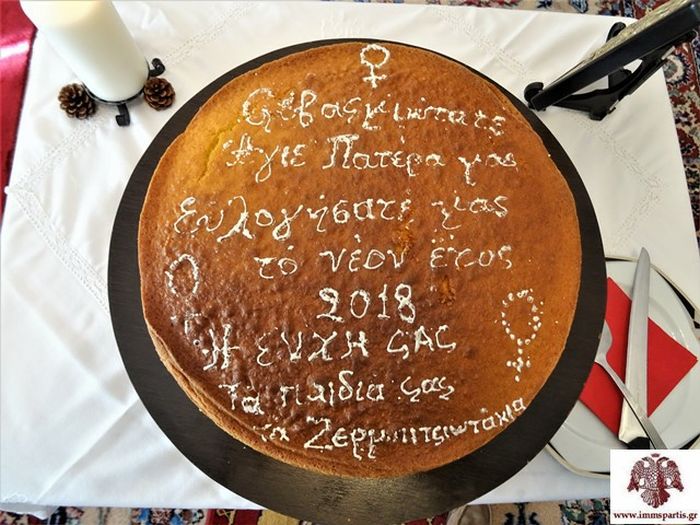 Σεβασμιώτατε
Άγιε Πατέρα μας
Εὐλογήσατε ἡμας
τό νέον ἔτος
2018
Η ΕΥΧΗ ΣΑΣ
Τα παιδια σας
τα Ζερμπιτσιωτάκια
www.immspartis.gr